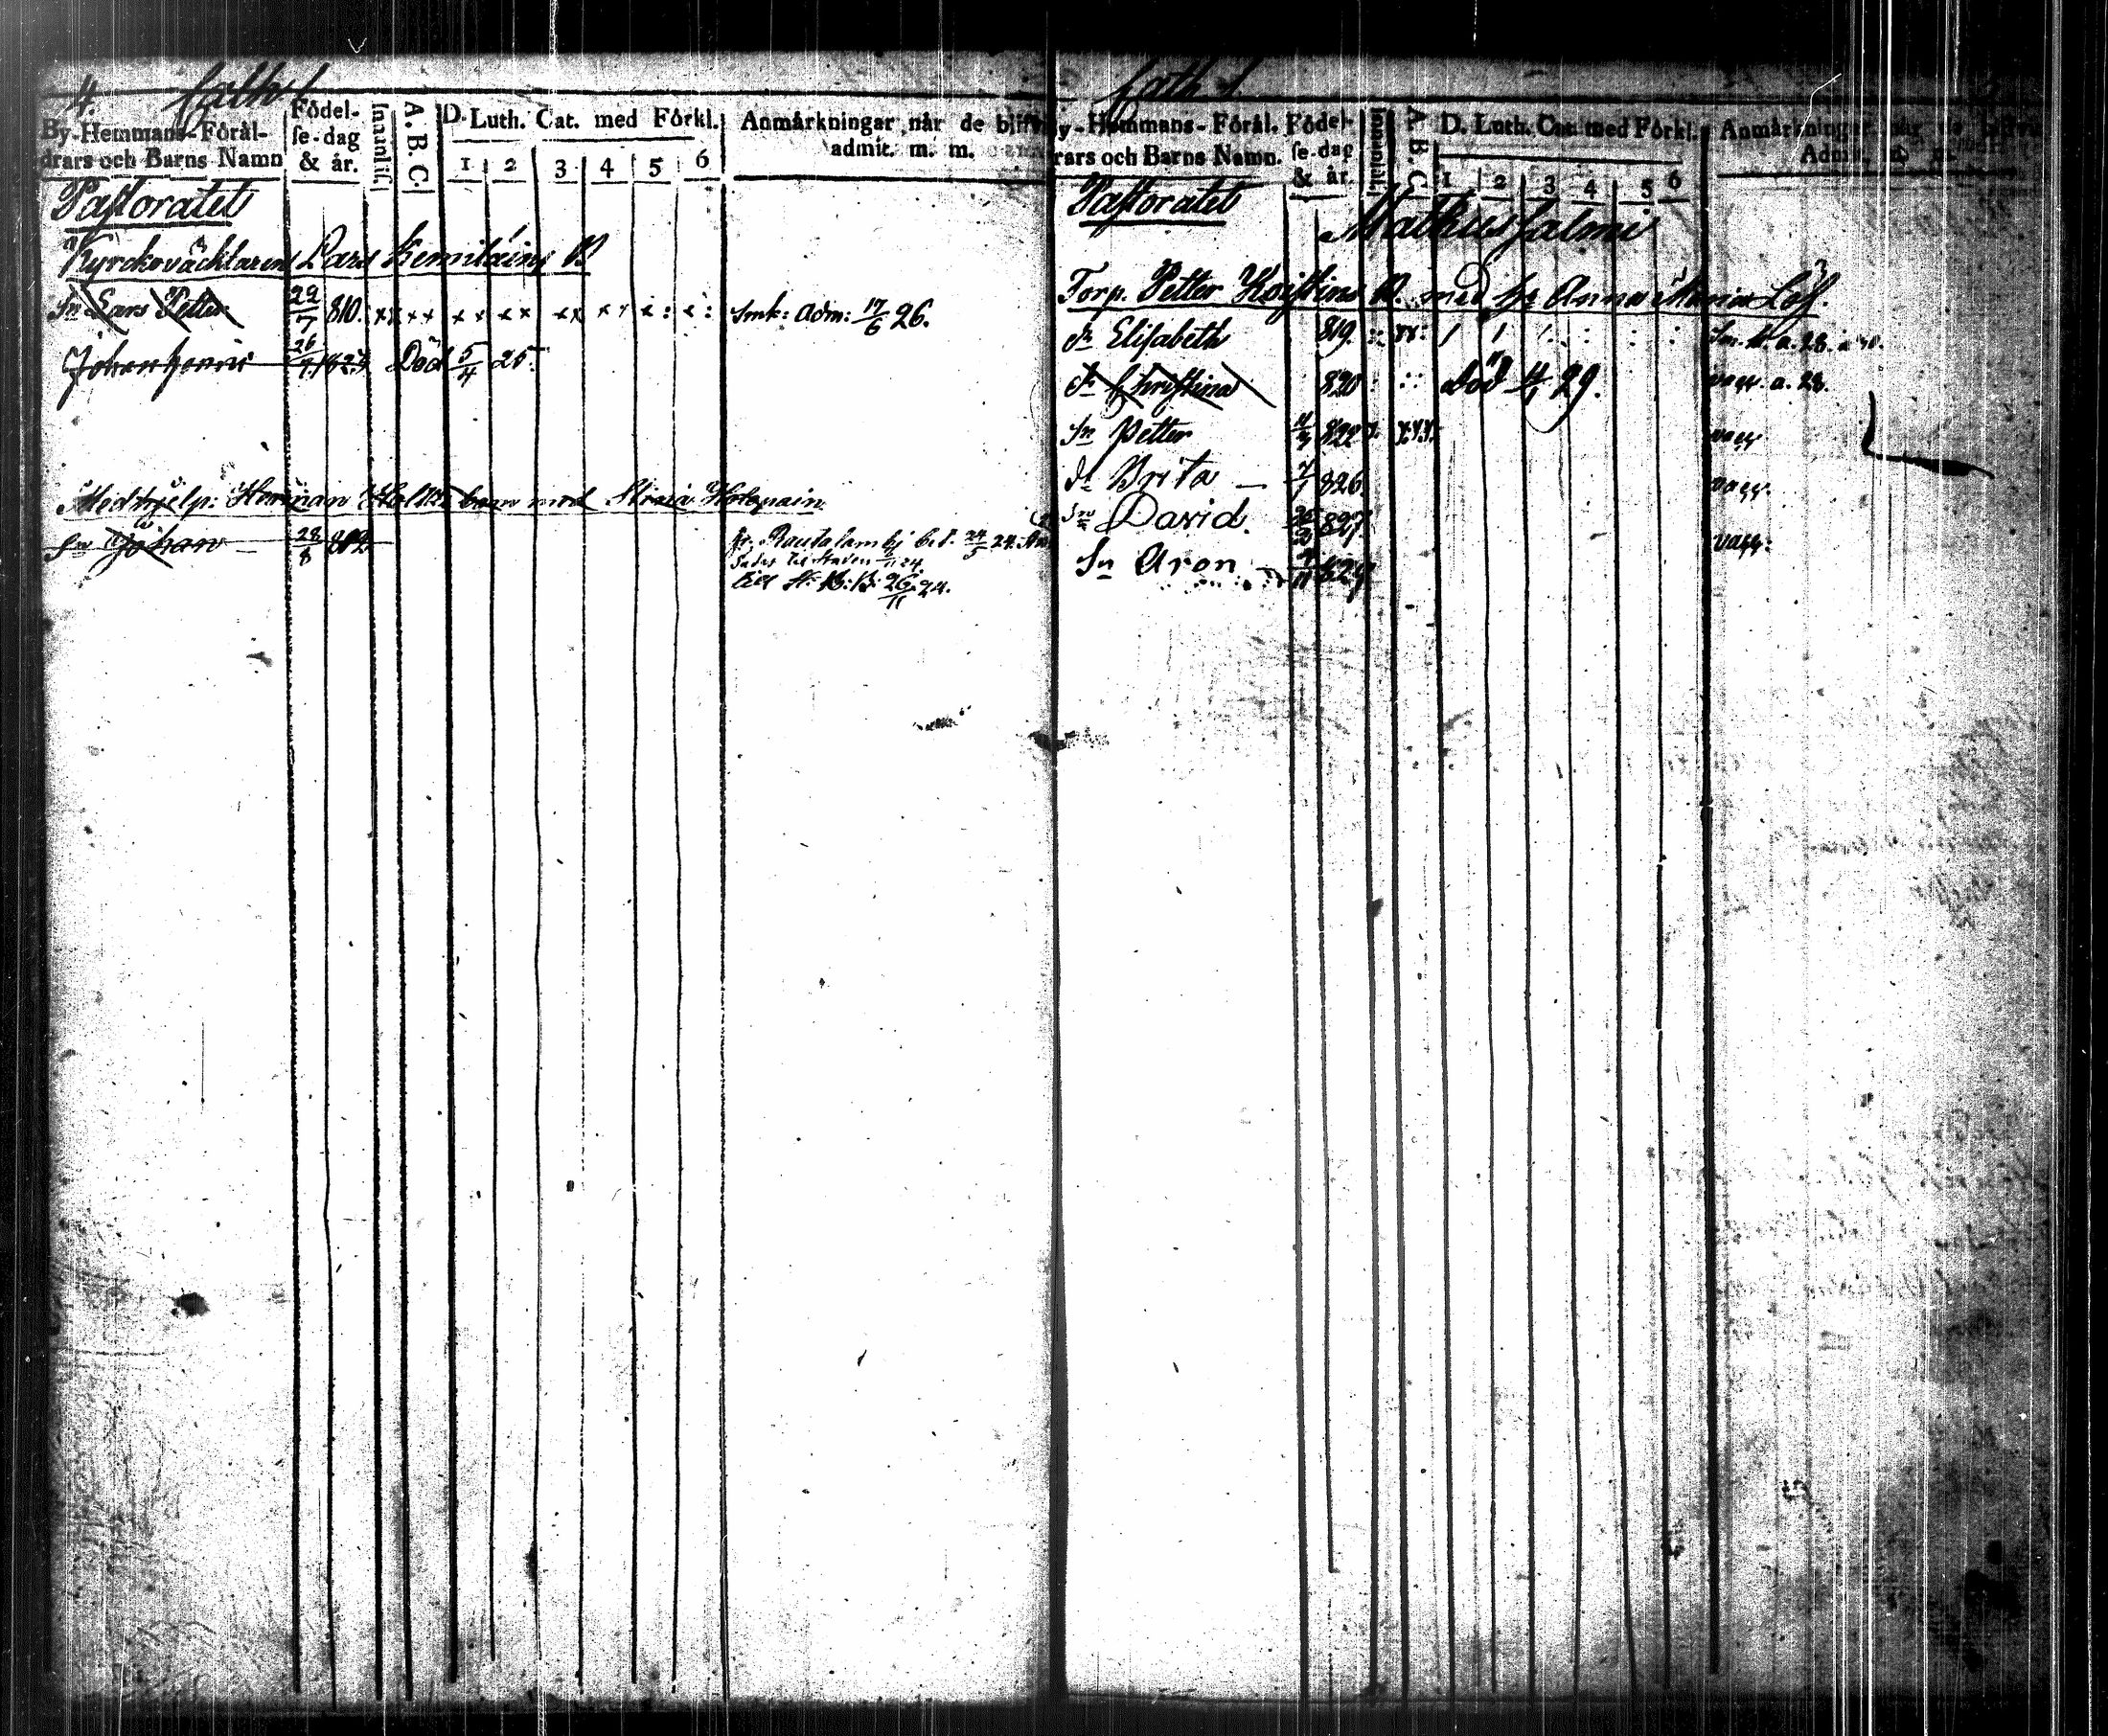 4.
By-Hemmans-Förål-
drars och Barns Namn
Födel-
se-dag
& år.
Innanläs.
A. B. C.
D. Luth. Cat. med Förkl.
1 2 3 4 5 6
Anmärkningar når de blifv
admit. m. m.
Pastoratet
Kyrckovächtarens Lars Kemiläins B
Sn Lars Petter 22/7 810. Smk: Adm: 17/6 26.
Johan Henric 26/7 1824 Död 5/4 25.
Medhjelp: Herman Holtz barn med Stina
Sn Johan 28/8 809. fr. Rautalambi bet. 24/5 24.
26/11 24.
Cath 1
By-Hemmans-Föräl.
drars och Barns Namn.
Födel-
se-dag
& år.
Innanläs.
A. B. C.
D. Luth. Cat. med Förkl.
1 2 3 4 5 6
Anmärkningar når de blifva
Admit. m. m.
Pastoratet
Mathussalmi
Torp. Petter Koistins B. med h. Anna Maria Löf.
dr Elisabeth 819.
dr Christina 820 Död 29. vacc. a. 28.
Sn Petter 822 vacc
dr Brita 7/1 826. vacc.
Sn David. 827. vacc:
Sn Aron 829